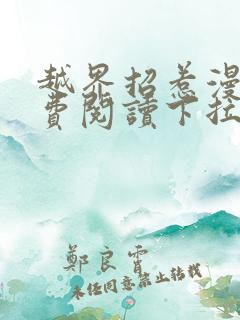 越界招惹漫
費閱讀下拉
鄭良霄
未經同意禁止轉載